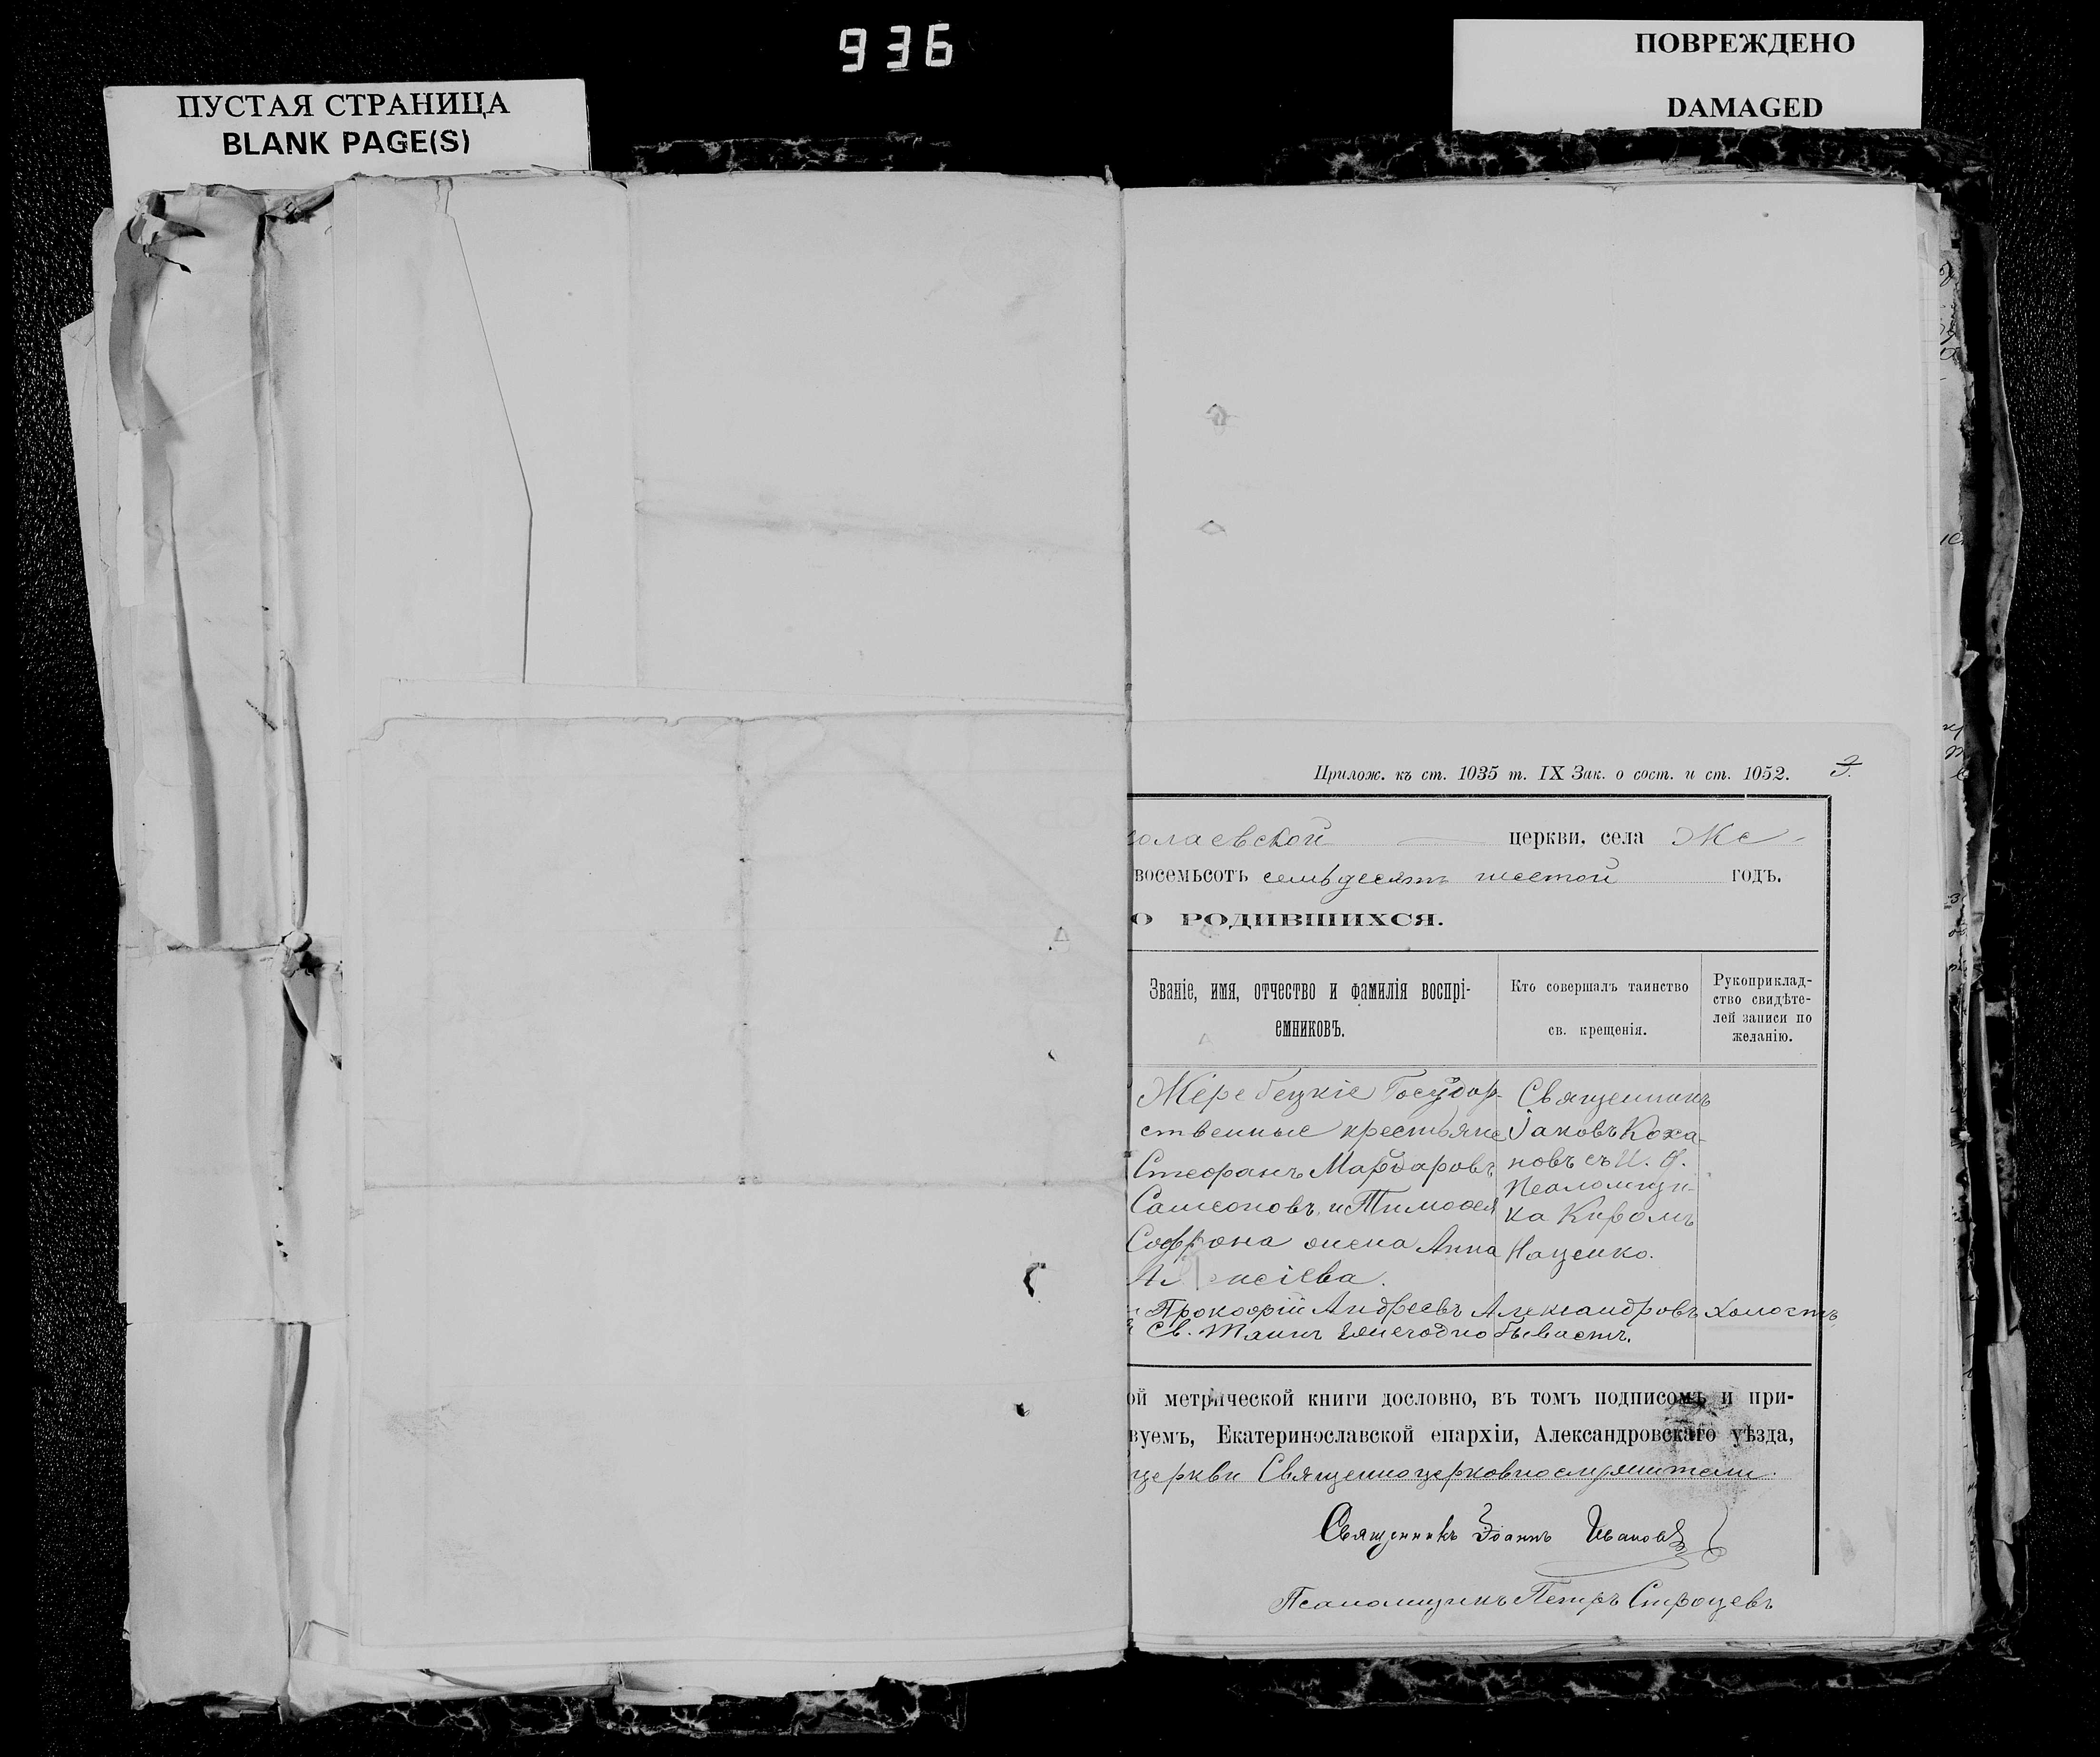 936
ПУСТАЯ СТРАНИЦА
BLANK PAGE(S)
ПОВРЕЖДЕНО
DAMAGED
Прилож. къ ст. 1035 т. IX Зак. о сост. и ст. 1052.
олаевской церкви, села Же-
восемьсотъ семьдесятъ шестой годъ.
О РОДИВШИХСЯ.
Званіе, имя, отчество и фамилія воспрі-
емниковъ.
Кто совершалъ таинство
св. крещенія.
Рукоприклад-
ство свидѣте-
лей записи по
желанію.
Жеребецкіе Государ-
ственные крестьяне
Стефанъ Мардаровъ
Самсоновъ и Тимофея
Софрона жена Анна
Священникъ
Іаковъ Коха-
новъ съ И. д.
Псаломщи-
ка Киромъ
Наценко.
Прокофій Андреевъ Александровъ холостъ
Св. Таинъ ежегодно бываетъ.
ой метрической книги дословно, въ томъ подписомъ и при-
вуемъ, Екатеринославской епархіи, Александровскаго уѣзда,
церкви Священноцерковнослужители.
Священникъ Іоаннъ Ивановъ
Псаломщикъ Петръ Строцевъ